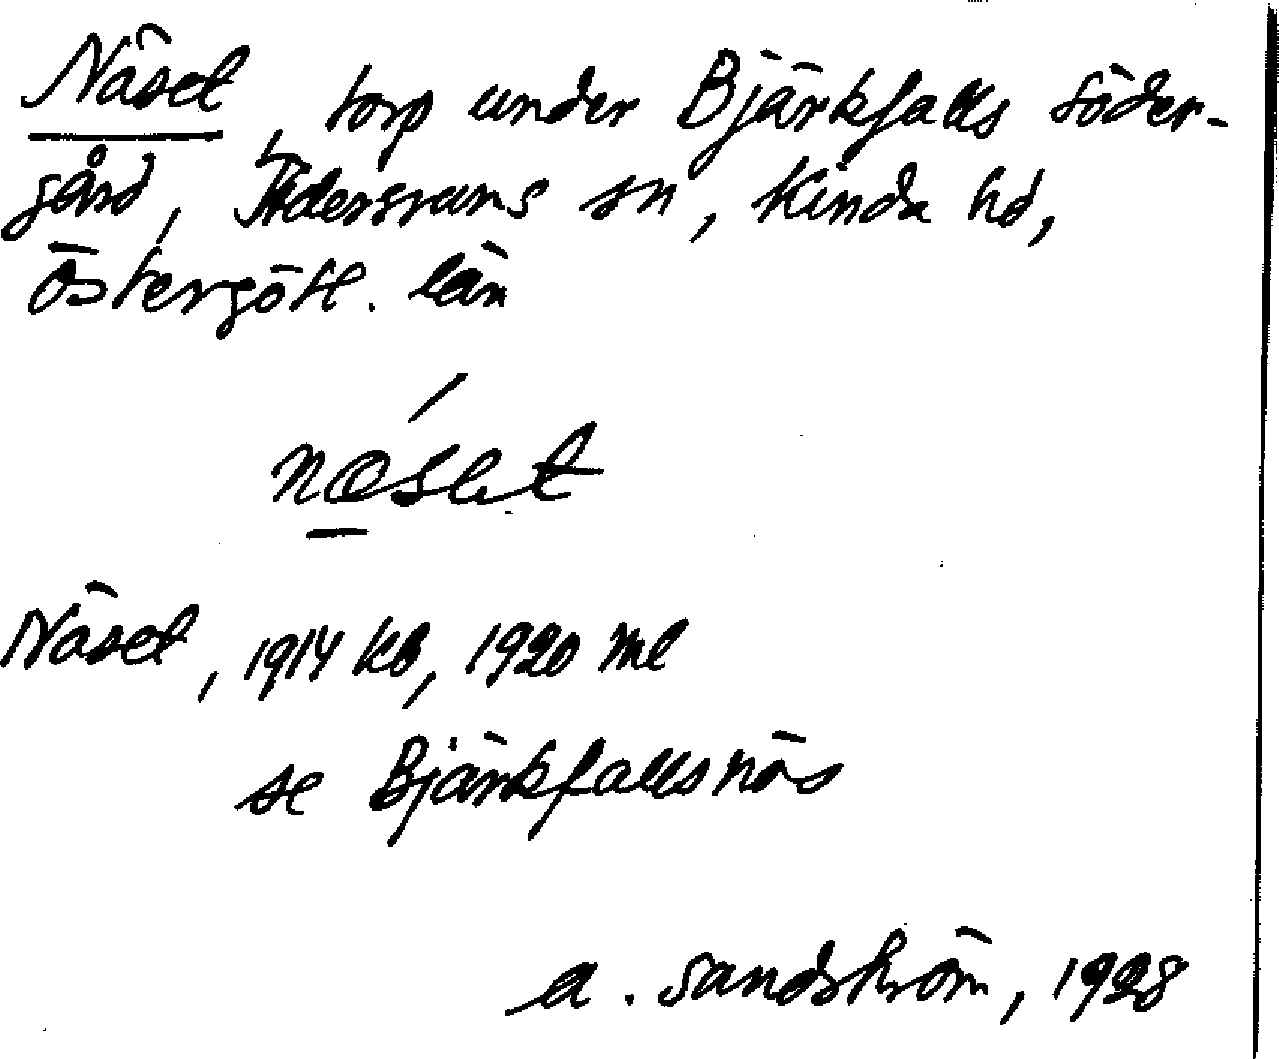 Näset, torp under Bjärkfalls Söder-
gård, Tidersrums sn, Kinda hd,
Östergötl. län
næset
Näset, 1914 kb, 1920 ml
se Bjärkfallsnäs
A. Sandström, 1928